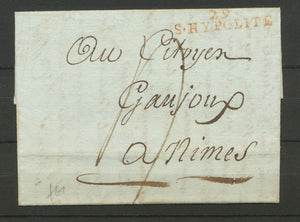 29
S·HYPOLITE
Au Citoyen
Gaujoux
a Nimes